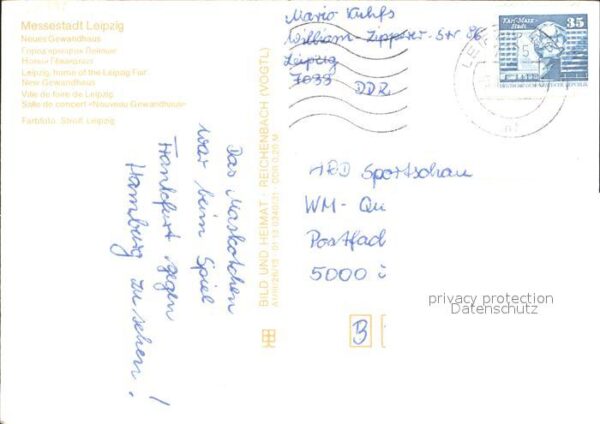 Messestadt Leipzig
Neues Gewandhaus
Leipzig, home of the Leipzig Fair
New Gewandhaus
Ville de foire de Leipzig
Salle de concert «Nouveau Gewandhaus»
Farbfoto: Straß Leipzig
BILD UND HEIMAT · REICHENBACH (VOGTL)
Mario
William-Zipperer-Str 86
Leipzig
7033
DDR
Karl-Marx-Stadt
35
DEUTSCHE DEMOKRATISCHE REPUBLIK
Das Maskotchen
war beim Spiel
Frankfurt gegen
Hamburg zu sehen!
ARD Sportschau
WM-Qu
Postfach
5000
B
privacy protection
Datenschutz